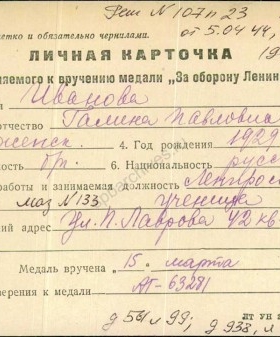 Реш N 107 п 23
етко и обязательно чернилами. от 5.04 44,
ЛИЧНАЯ КАРТОЧКА 19
ляемого к вручению медали „За оборону Ленин
Иванова
тчество Галина Павловна
женск 4. Год рождения 1929
ность гр. 6. Национальность русс
работы и занимаемая должность Ленгорс
маг N 133 ученица
ий адрес ул. П. Лаврова 42 кв.
Медаль вручена „ 15 “ марта
ерения к медали АГ-63281
ЛТ УН
д 541 л 99; д 938, л